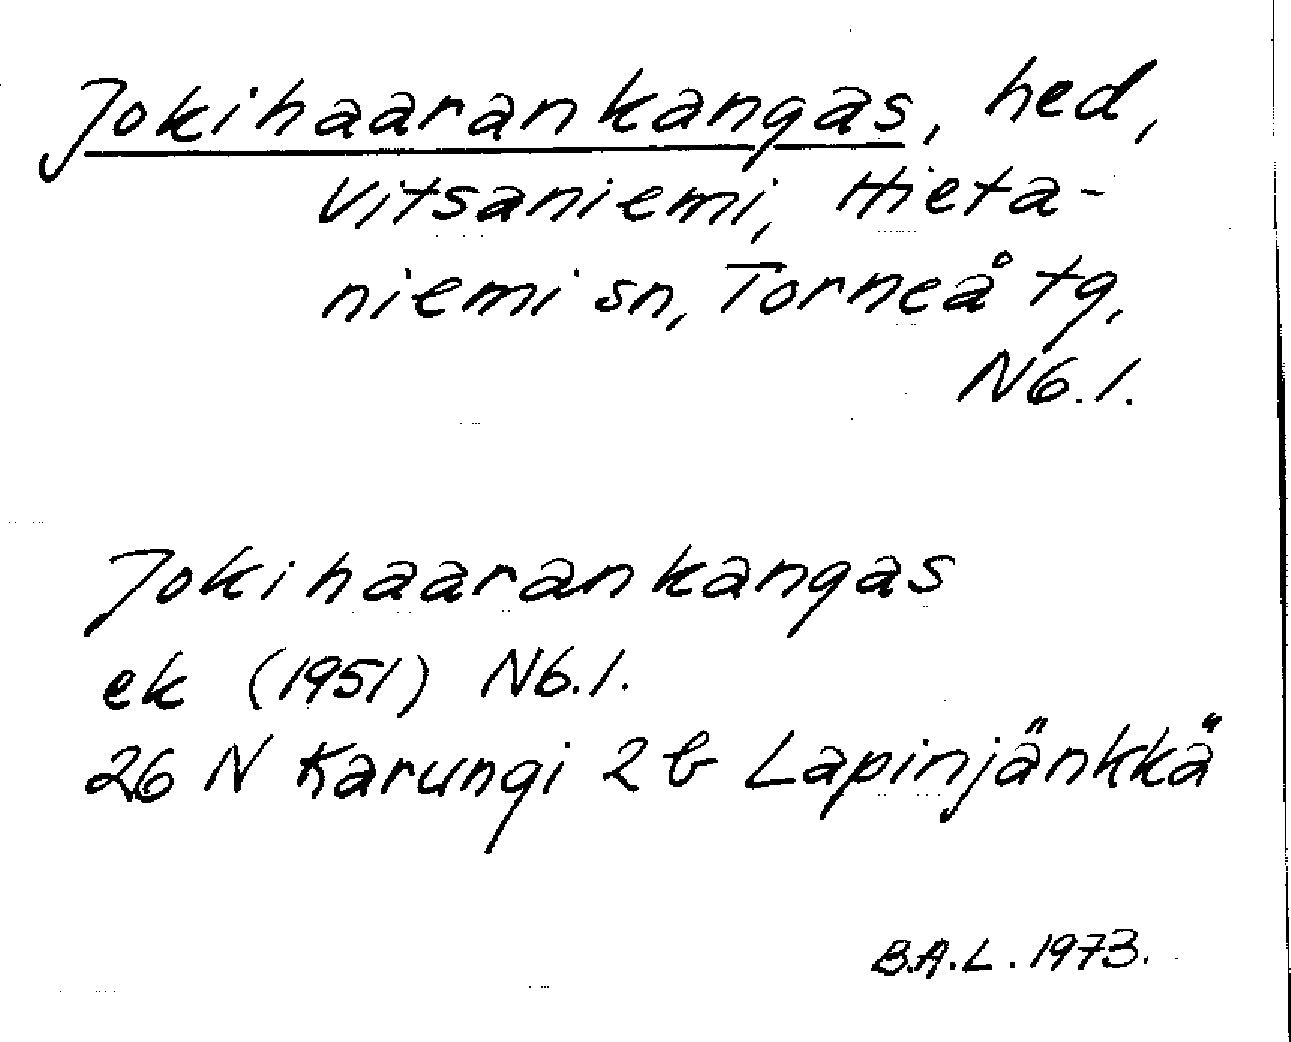 Jokihaarankangas, hed,
Vitsaniemi, Hieta-
niemi sn, Torneå tg,
Nb. l.
Jokihaarankangas
ek (1951) Nb. l.
26 N Karungi 2 b Lapinjänkkä
B.A.L. 1973.